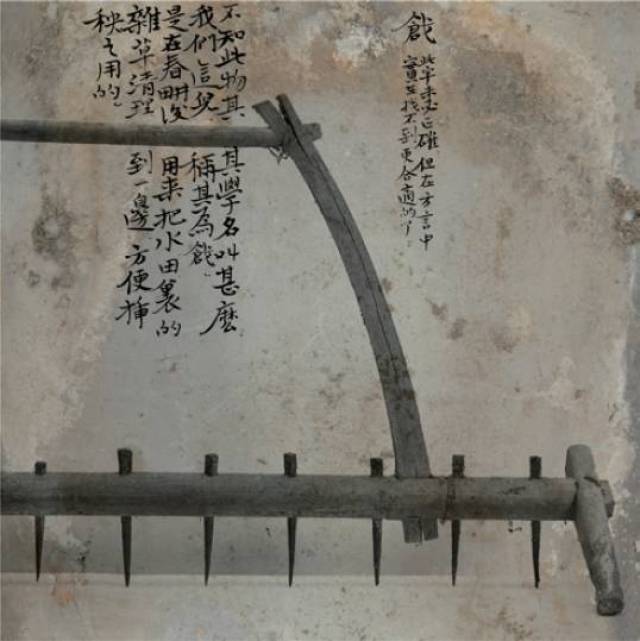 戧
此字未必正確但在方言中
實在找不到更合適的了
不知此物其其學名叫甚麼
我們這兒稱其為戧
是在春耕後用來把水田裏的
雜草清理到一邊方便插
秧之用的